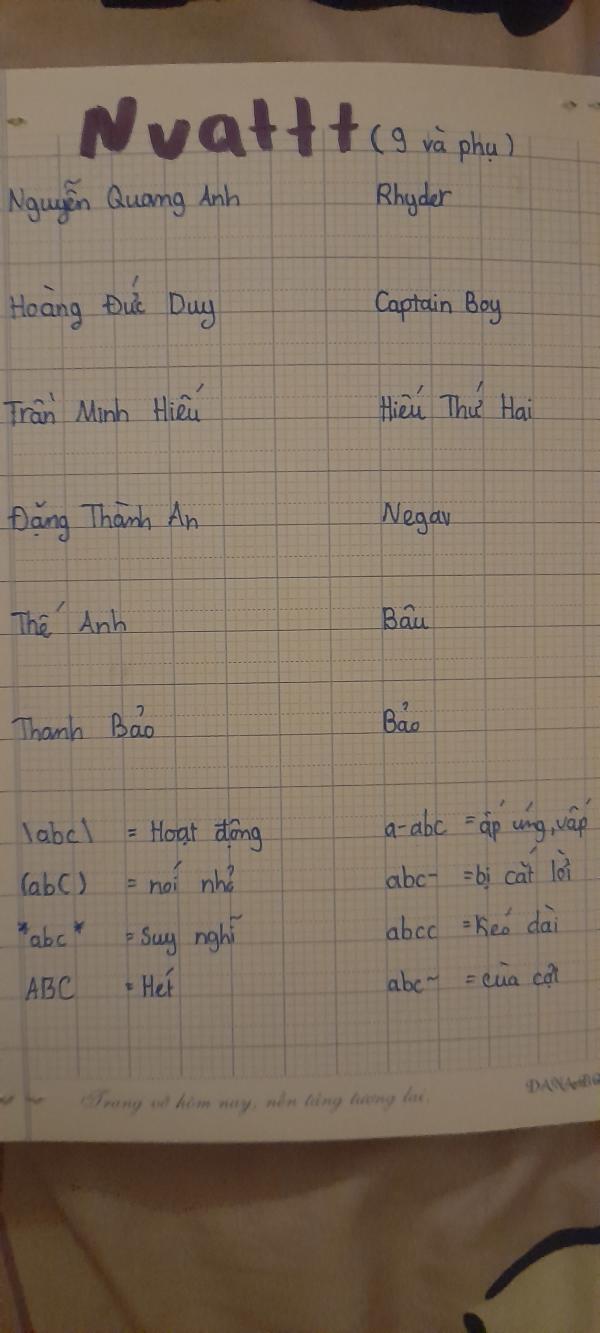 Nvattt (9 và phụ)
Nguyễn Quang Anh Rhyder
Hoàng Đức Duy Captain Boy
Trần Minh Hiếu Hiếu Thứ Hai
Đặng Thành An Negav
Thế Anh Bâu
Thanh Bảo Bảo
\abc\ = Hoạt động a-abc = ấp úng, vấp
(abC) = nói nhỏ abc- = bị cắt lời
*abc* = Suy nghĩ abcc = Kéo dài
ABC = Hét abc~ = cùa cợt
Trang vở hôm nay, nền tảng tương lai.